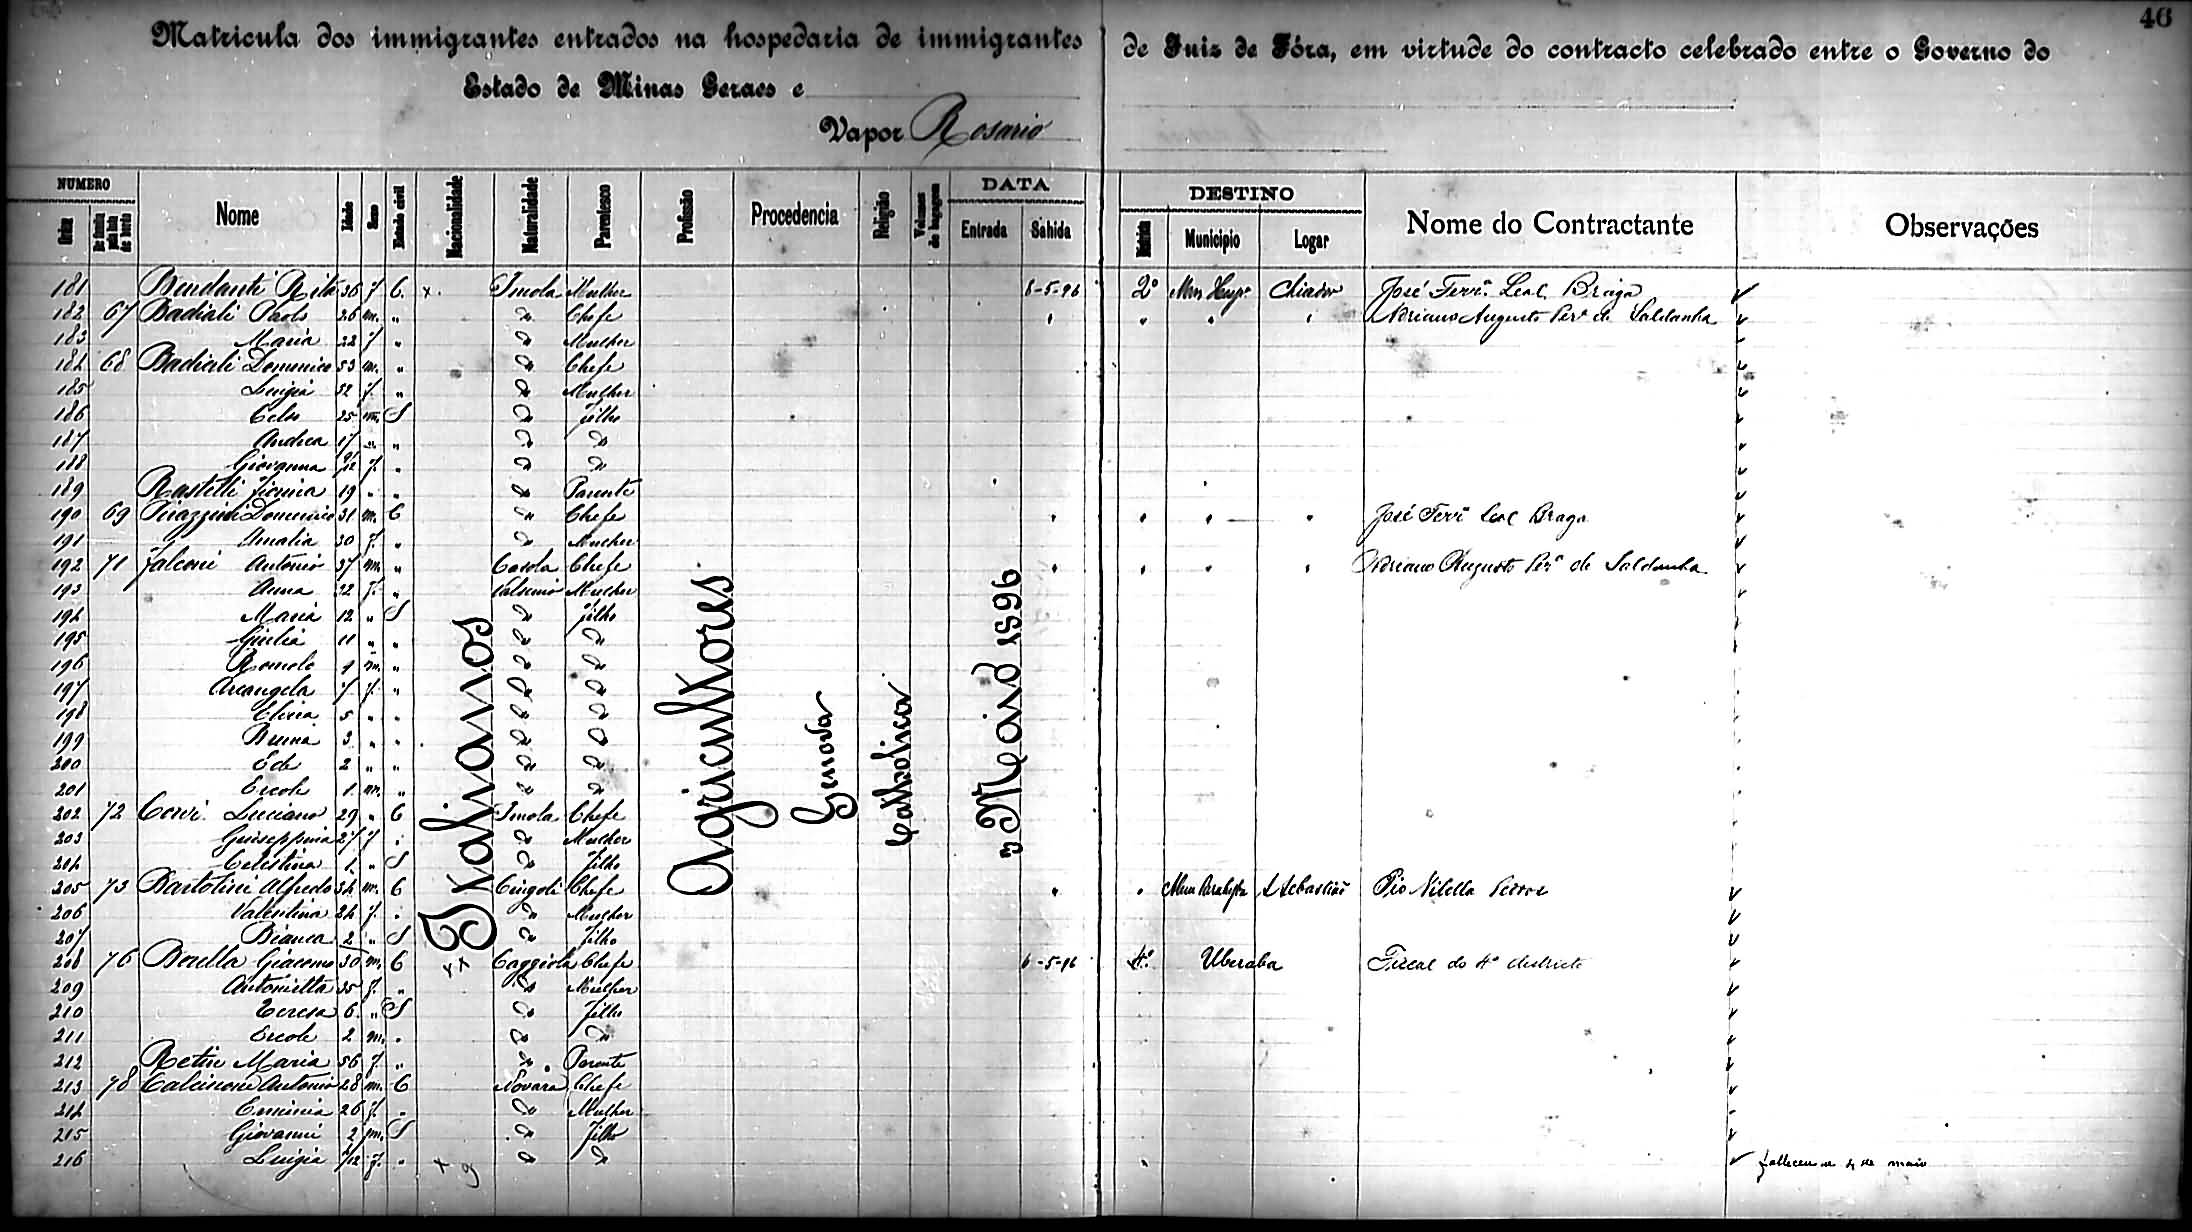 46
Matricula dos immigrantes entrados na hospedaria de immigrantes de Juiz de Fóra, em virtude do contracto celebrado entre o Governo do
Estado de Minas Geraes e
Vapor Rosario
NUMERO DATA DESTINO
Ordem Nome Idade Sexo Estado civil Nacionalidade Naturalidade Parentesco Profissão Procedencia Religião Volumes de bagagem Entrada Sahida Districto Municipio Logar Nome do Contractante Observações
Italianos
Agricultores
Genova
Catholica
3 Maio 1896
181 Bendanti Rita 36 f C. x. Imola Mulher 6-5-96 2º Chiador José Ferrª Leal Braga
182 67 Badiali Paolo 26 m. " " Chefe " " " " Adriano Augusto Perª de Saldanha
183 Maria 22 f " " Mulher
184 68 Badiali Domenico 53 m. " " Chefe
185 Luigia 52 f. " " Mulher
186 Celso 25 m. S " filho
187 Andrea 17 " " " "
188 Giovanna f. " " "
189 Rastelli 19 " " " Parente
190 69 Domenico 31 m. C " Chefe " " " " José Ferrª Leal Braga
191 Amalia 30 f. " " Mulher
192 71 Falconi Antonio 37 m. " Casola Chefe " " " " Adriano Augusto Perª de Saldanha
193 Anna 32 f. " Valsenio Mulher
194 Maria 12 " S " filho
195 Giulia 11 " " " "
196 Romolo 9 m. " " "
197 Arcangela 7 f. " " "
198 5 " " " "
199 3 " " " "
200 2 " " " "
201 Ercole 1 m. " " "
202 72 Luciano 29 " C Imola Chefe
203 Giuseppina 27 f " " Mulher
204 Celestina 1 " S " filho
205 73 Bartolini Alfredo 34 m. C Cingoli Chefe " " S Sebastião Pio Vilella
206 Valentina 24 f. " " Mulher
207 Bianca 2 " S " filho
208 76 Giacomo 30 m. C xx Caggiola Chefe 6-5-96 4º Uberaba Fiscal do 4º districto
209 Antonietta 35 f. " " Mulher
210 Teresa 6 " S " filho
211 Ercole 2 m. " " "
212 Maria 56 f. " " Parente
213 78 Antonio 28 m. C Novara Chefe
214 Erminia 26 f. " " Mulher
215 Giovanni 2 m. S " Filho
216 Luigia f. " x " " falleceu de maio